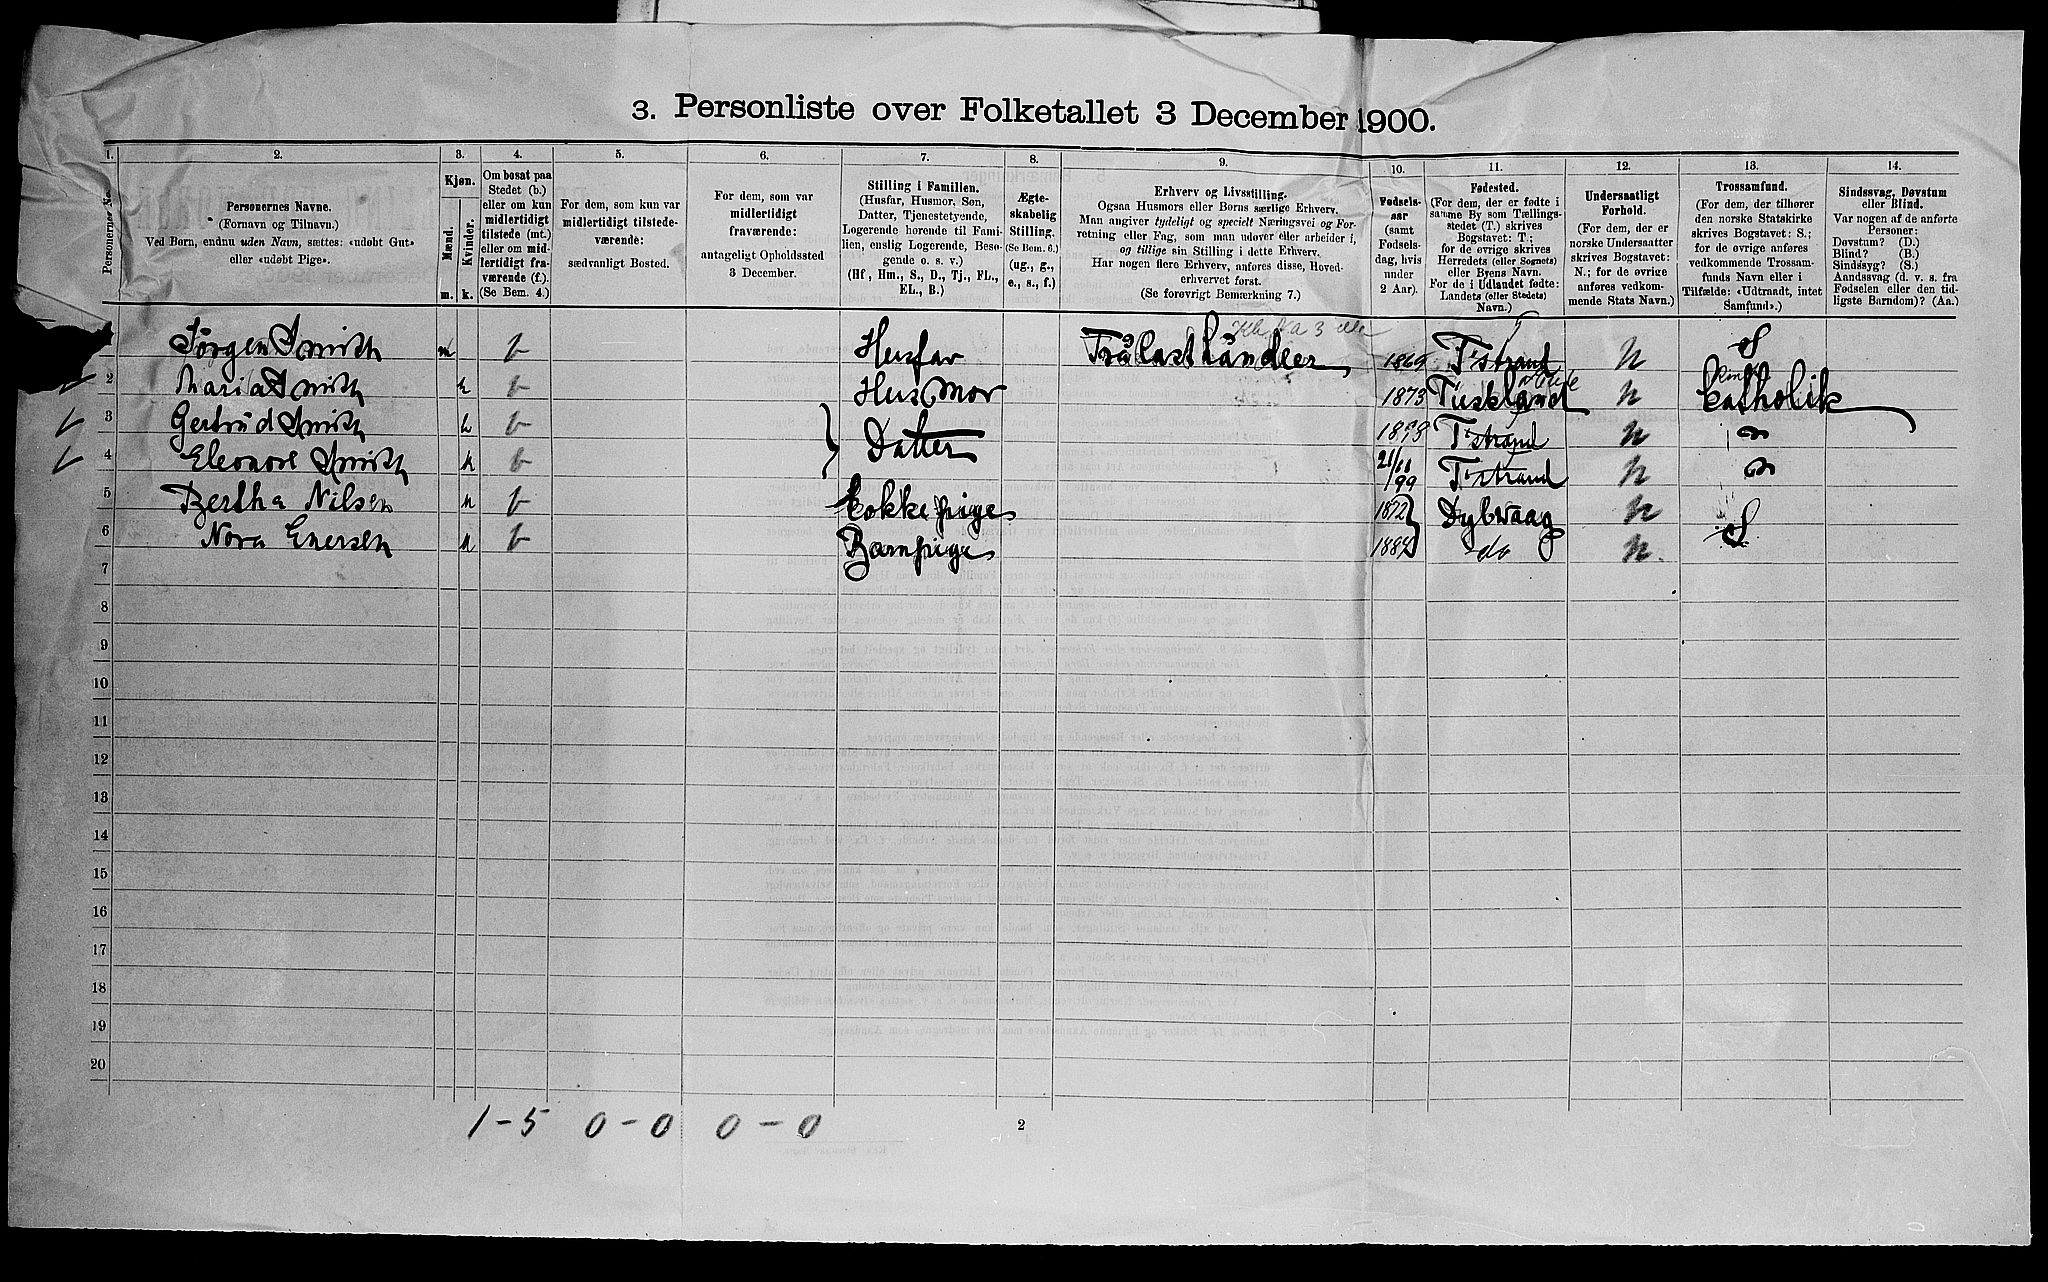 3. Personliste over Folketallet 3 December 1900.
1. 2. 3. 4. 5. 6. 7. 8. 9. 10. 11. 12. 13. 14.
Personernes No.
Personernes Navne.
(Fornavn og Tilnavn.)
Ved Børn, endnu uden Navn, sættes: «udøbt Gut»
eller «udøbt Pige».
Kjøn.
Mænd. Kvinder.
m. k.
Om bosat paa
Stedet (b.)
eller om kun
midlertidigt
tilstede (mt.)
eller om mid-
lertidigt fra-
værende (f.).
(Se Bem. 4.)
For dem, som kun var
midlertidigt tilstede-
værende:
sædvanligt Bosted.
For dem, som var
midlertidigt
fraværende:
antageligt Opholdssted
3 December.
Stilling i Familien.
(Husfar, Husmor, Søn,
Datter, Tjenestetyende,
Logerende hørende til Fami-
lien, enslig Logerende, Besø-
gende o. s. v.)
(Hf, Hm., S., D., Tj., FL.,
EL., B.)
Ægte-
skabelig
Stilling.
(Se Bem. 6.)
(ug., g.,
e., s., f.)
Erhverv og Livsstilling.
Ogsaa Husmors eller Børns særlige Erhverv.
Man angiver tydeligt og specielt Næringsvei og For-
retning eller Fag, som man udøver eller arbeider i,
og tillige sin Stilling i dette Erhverv.
Har nogen flere Erhverv, anføres disse, Hoved-
erhvervet først.
(Se forøvrigt Bemærkning 7.)
Fødsels-
aar
(samt
Fødsels-
dag, hvis
under
2 Aar).
Fødested.
(For dem, der er fødte i
samme By som Tællings-
stedet (T.) skrives
Bogstavet: T.;
for de øvrige skrives
Herredets (eller Sognets)
eller Byens Navn.
For de i Udlandet fødte:
Landets (eller Stedets)
Navn.)
Undersaatligt
Forhold.
(For dem, der er
norske Undersaatter
skrives Bogstavet:
N.; for de øvrige
anføres vedkom-
mende Stats Navn.)
Trossamfund.
(For dem, der tilhører
den norske Statskirke
skrives Bogstavet: S.;
for de øvrige anføres
vedkommende Trossam-
funds Navn eller i
Tilfælde: «Udtraadt, intet
Samfund».)
Sindssvag, Døvstum
eller Blind.
Var nogen af de anførte
Personer:
Døvstum? (D.)
Blind? (B.)
Sindssyg? (S.)
Aandssvag (d. v. s. fra
Fødselen eller den tid-
ligste Barndom)? (Aa.)
Jörgen Smith m b Husfar Trålasthåndler 1869 T'strand N S
2 Maria Smith k b Husmor 1873 Tuskland N Katholik
3 Gertrud Smith k b Datter 1898 T'strand N "
4 Eleonore Smith k b 21/11 99 T'strand N "
5 Bertha Nilsen k b Kokkepige 1872 Dybwaag N S
6 Nora Enersen k b Barnpige do N
7
8
9
10
11
12
13
14
15
16
17
18
19
20
1 - 5 0 - 0 0 - 0
2